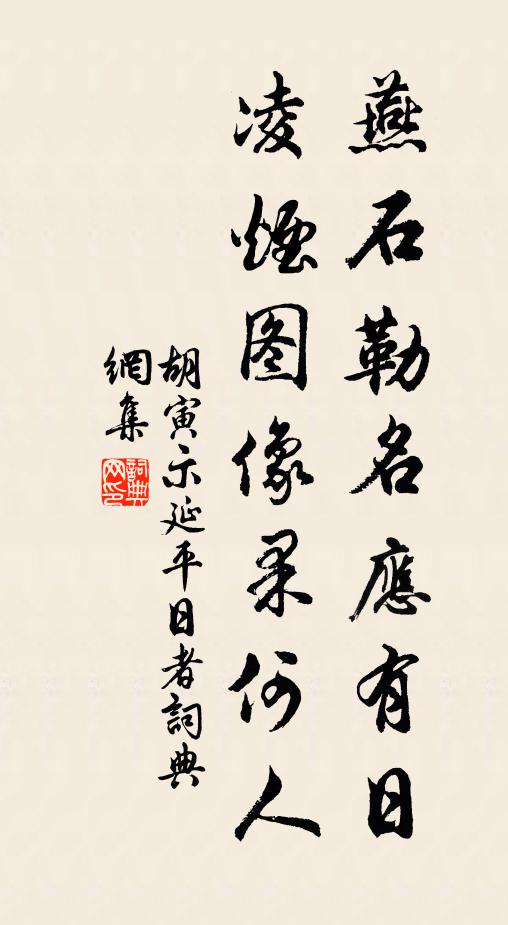 燕石勒名應有日
凌煙图像果何人
胡寅示延平日者詞典
網集
詞典
网印